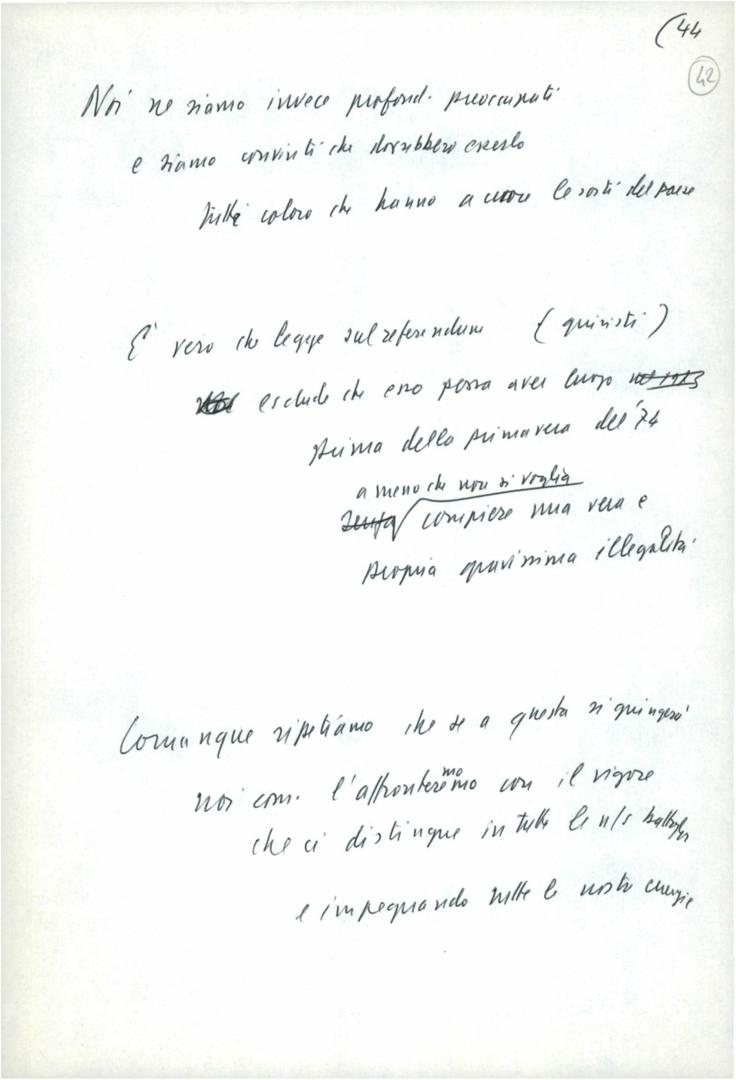 (44
42
Noi ne siamo invece profond. preoccupati
e siamo convinti che dovrebbero esserlo
tutti coloro che hanno a cuore le sorti del paese
E' vero che legge sul referendum (giuristi)
esclude che esso possa aver luogo nel 1973
prima della primavera del '74
a meno che non si voglia
compiere una vera e
propria gravissima illegalità
Comunque ripetiamo che se a questa si giungerà
noi com. l'affronteremo con il vigore
mo
che ci distingue in tutte le n/s battaglie
e impegnando tutte le nostre energie